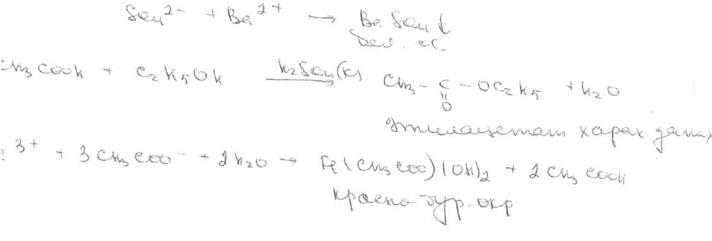 SO₄²⁻ + Ba²⁺ → BaSO₄↓
бел. ос.
CH₃COOH + C₂H₅OH H₂SO₄(к)→ CH₃–C–OC₂H₅ + H₂O
||
O
этилацетат харак запах
3+ + 3CH₃COO⁻ + 2H₂O → Fe(CH₃COO)(OH)₂ + 2CH₃COOH
красно-бур. окр